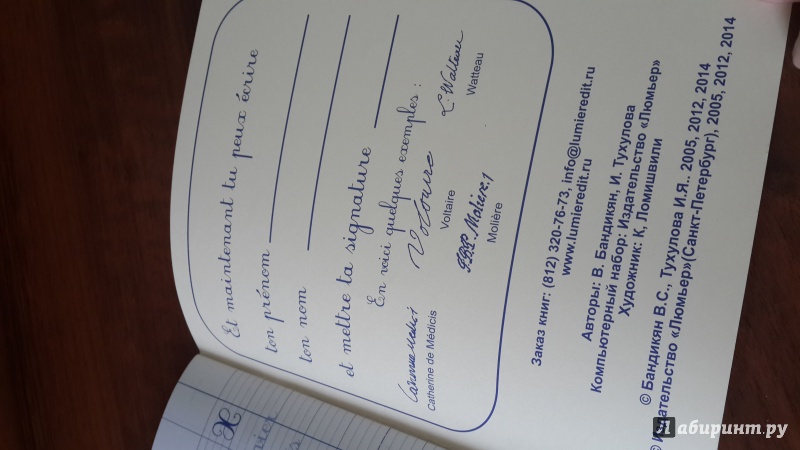 Et maintenant tu peux écrire
ton prénom
ton nom
et mettre ta signature
En voici quelques exemples :
Catherine de Médicis
Voltaire
Voltaire
L. Watteau
Watteau
Molière
Заказ книг: (812) 320-76-73, info@lumieredit.ru
www.lumieredit.ru
Авторы: В. Бандикян, И. Тухулова
Компьютерный набор: Издательство «Люмьер»
Художник: К, Ломишвили
© Бандикян В.С., Тухулова И.Я.. 2005, 2012, 2014
© Издательство «Люмьер»(Санкт-Петербург), 2005, 2012, 2014
Лабиринт.ру